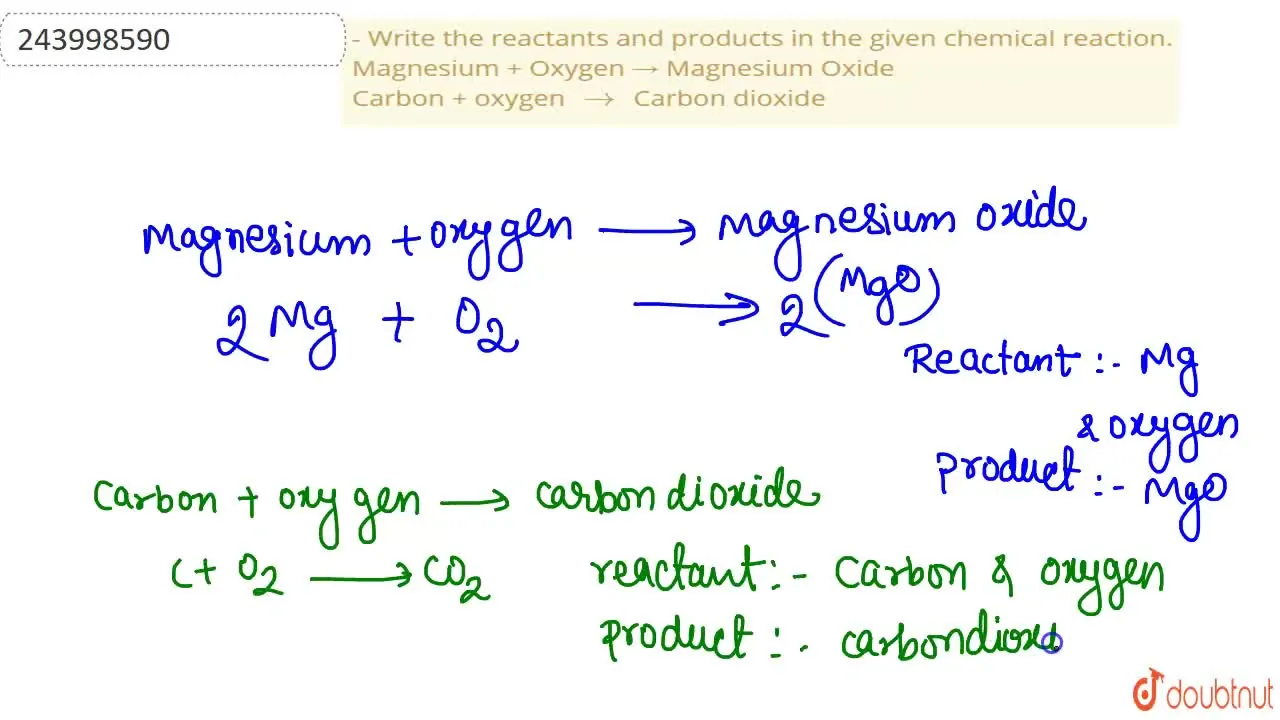 243998590
- Write the reactants and products in the given chemical reaction.
Magnesium + Oxygen → Magnesium Oxide
Carbon + oxygen → Carbon dioxide
Magnesium + oxygen → Magnesium oxide
2 Mg + O2 → 2 (MgO)
Reactant :- Mg
& oxygen
Product :- MgO
Carbon + oxygen → carbondioxide
C + O2 → CO2
reactant :- Carbon & oxygen
Product :- carbondioxi
doubtnut